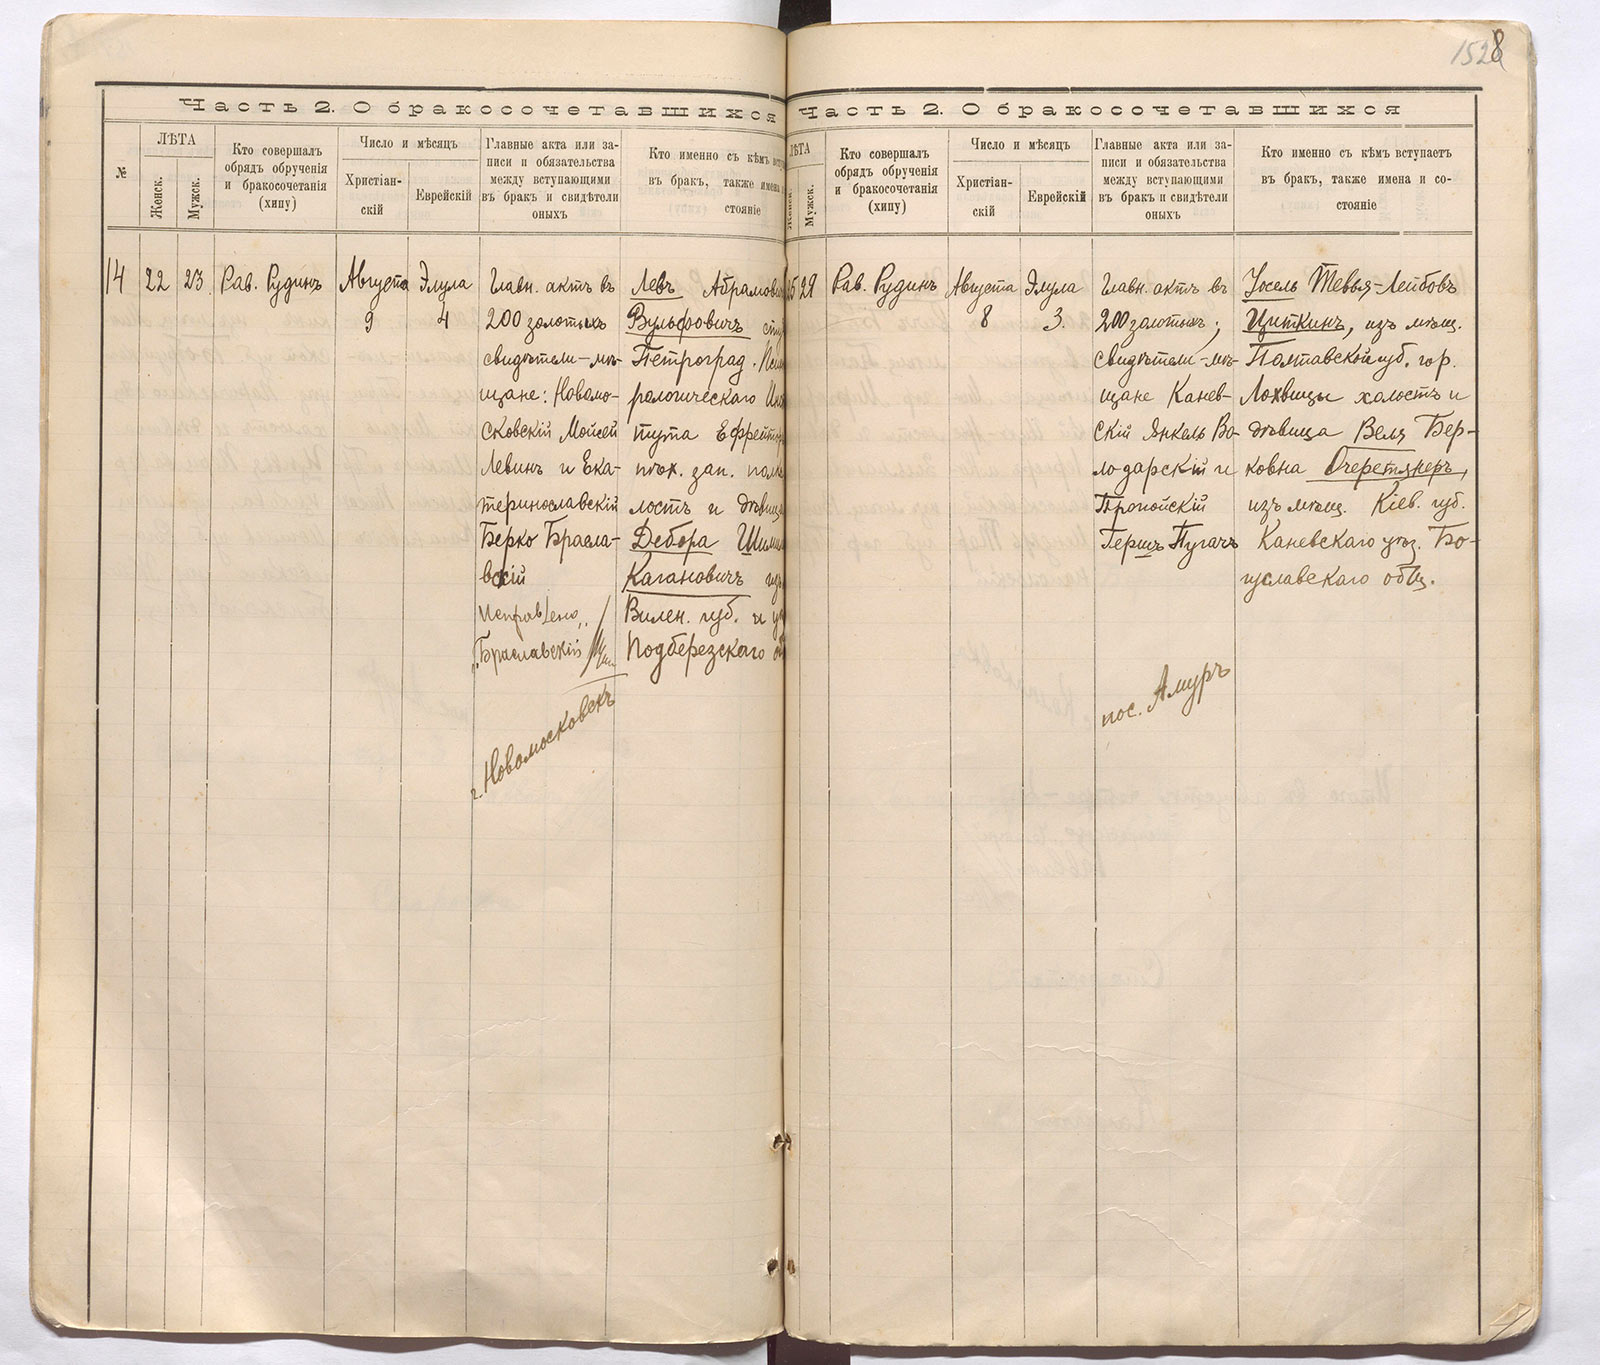 1528
Часть 2. О бракосочетавшихся
№
ЛѢТА
Женск.
Мужск.
Кто совершалъ
обрядъ обрученія
и бракосочетанія
(хипу)
Число и мѣсяцъ
Христіан-
скій
Еврейскій
Главные акта или за-
писи и обязательства
между вступающими
въ бракъ и свидѣтели
оныхъ
Кто именно съ кѣмъ всту
въ бракъ, также имена
стояніе
14
22
23
Рав. Рудинъ
Августа
9
Элула
4
Главн. актъ въ
200 золотыхъ
свидѣтели-мѣ-
щане: Новомо-
сковскій Мойсей
Левинъ и Ека-
теринославскій
Берко Брасла-
вскій
Исправлено,
"Браславскій
г. Новомосковскъ
Левъ Абрамович
Вульфовичъ сту
Петроград. Пси
рологическаго Инс
тута Ефрейтор
пѣх. зап. полк
лость и дѣвица
Дебора Шлим
Кагановичъ изъ
Вилен. губ. и у
Подберезскаго о
Часть 2. О бракосочетавшихся
ЛѢТА
Женск.
Мужск.
Кто совершалъ
обрядъ обрученія
и бракосочетанія
(хипу)
Число и мѣсяцъ
Христіан-
скій
Еврейскій
Главные акта или за-
писи и обязательства
между вступающими
въ бракъ и свидѣтели
оныхъ
Кто именно съ кѣмъ вступаетъ
въ бракъ, также имена и со-
стояніе
25
29
Рав. Рудинъ
Августа
8
Элула
3.
Главн. актъ въ
200 золотыхъ;
свидѣтели-мѣ-
щане Канев-
скій Янкель Во-
лодарскій и
Пропойскій
Гершъ Пугачъ
пос. Амуръ
Іосель Тевья-Лейбовъ
Циткинъ, изъ мѣщ.
Полтавской губ. гор.
Лохвицы холостъ и
дѣвица Веля Бер-
ковна Очеретянеръ,
изъ мѣщ. Кіев. губ.
Каневскаго уѣз. Бо-
гуславскаго общ.